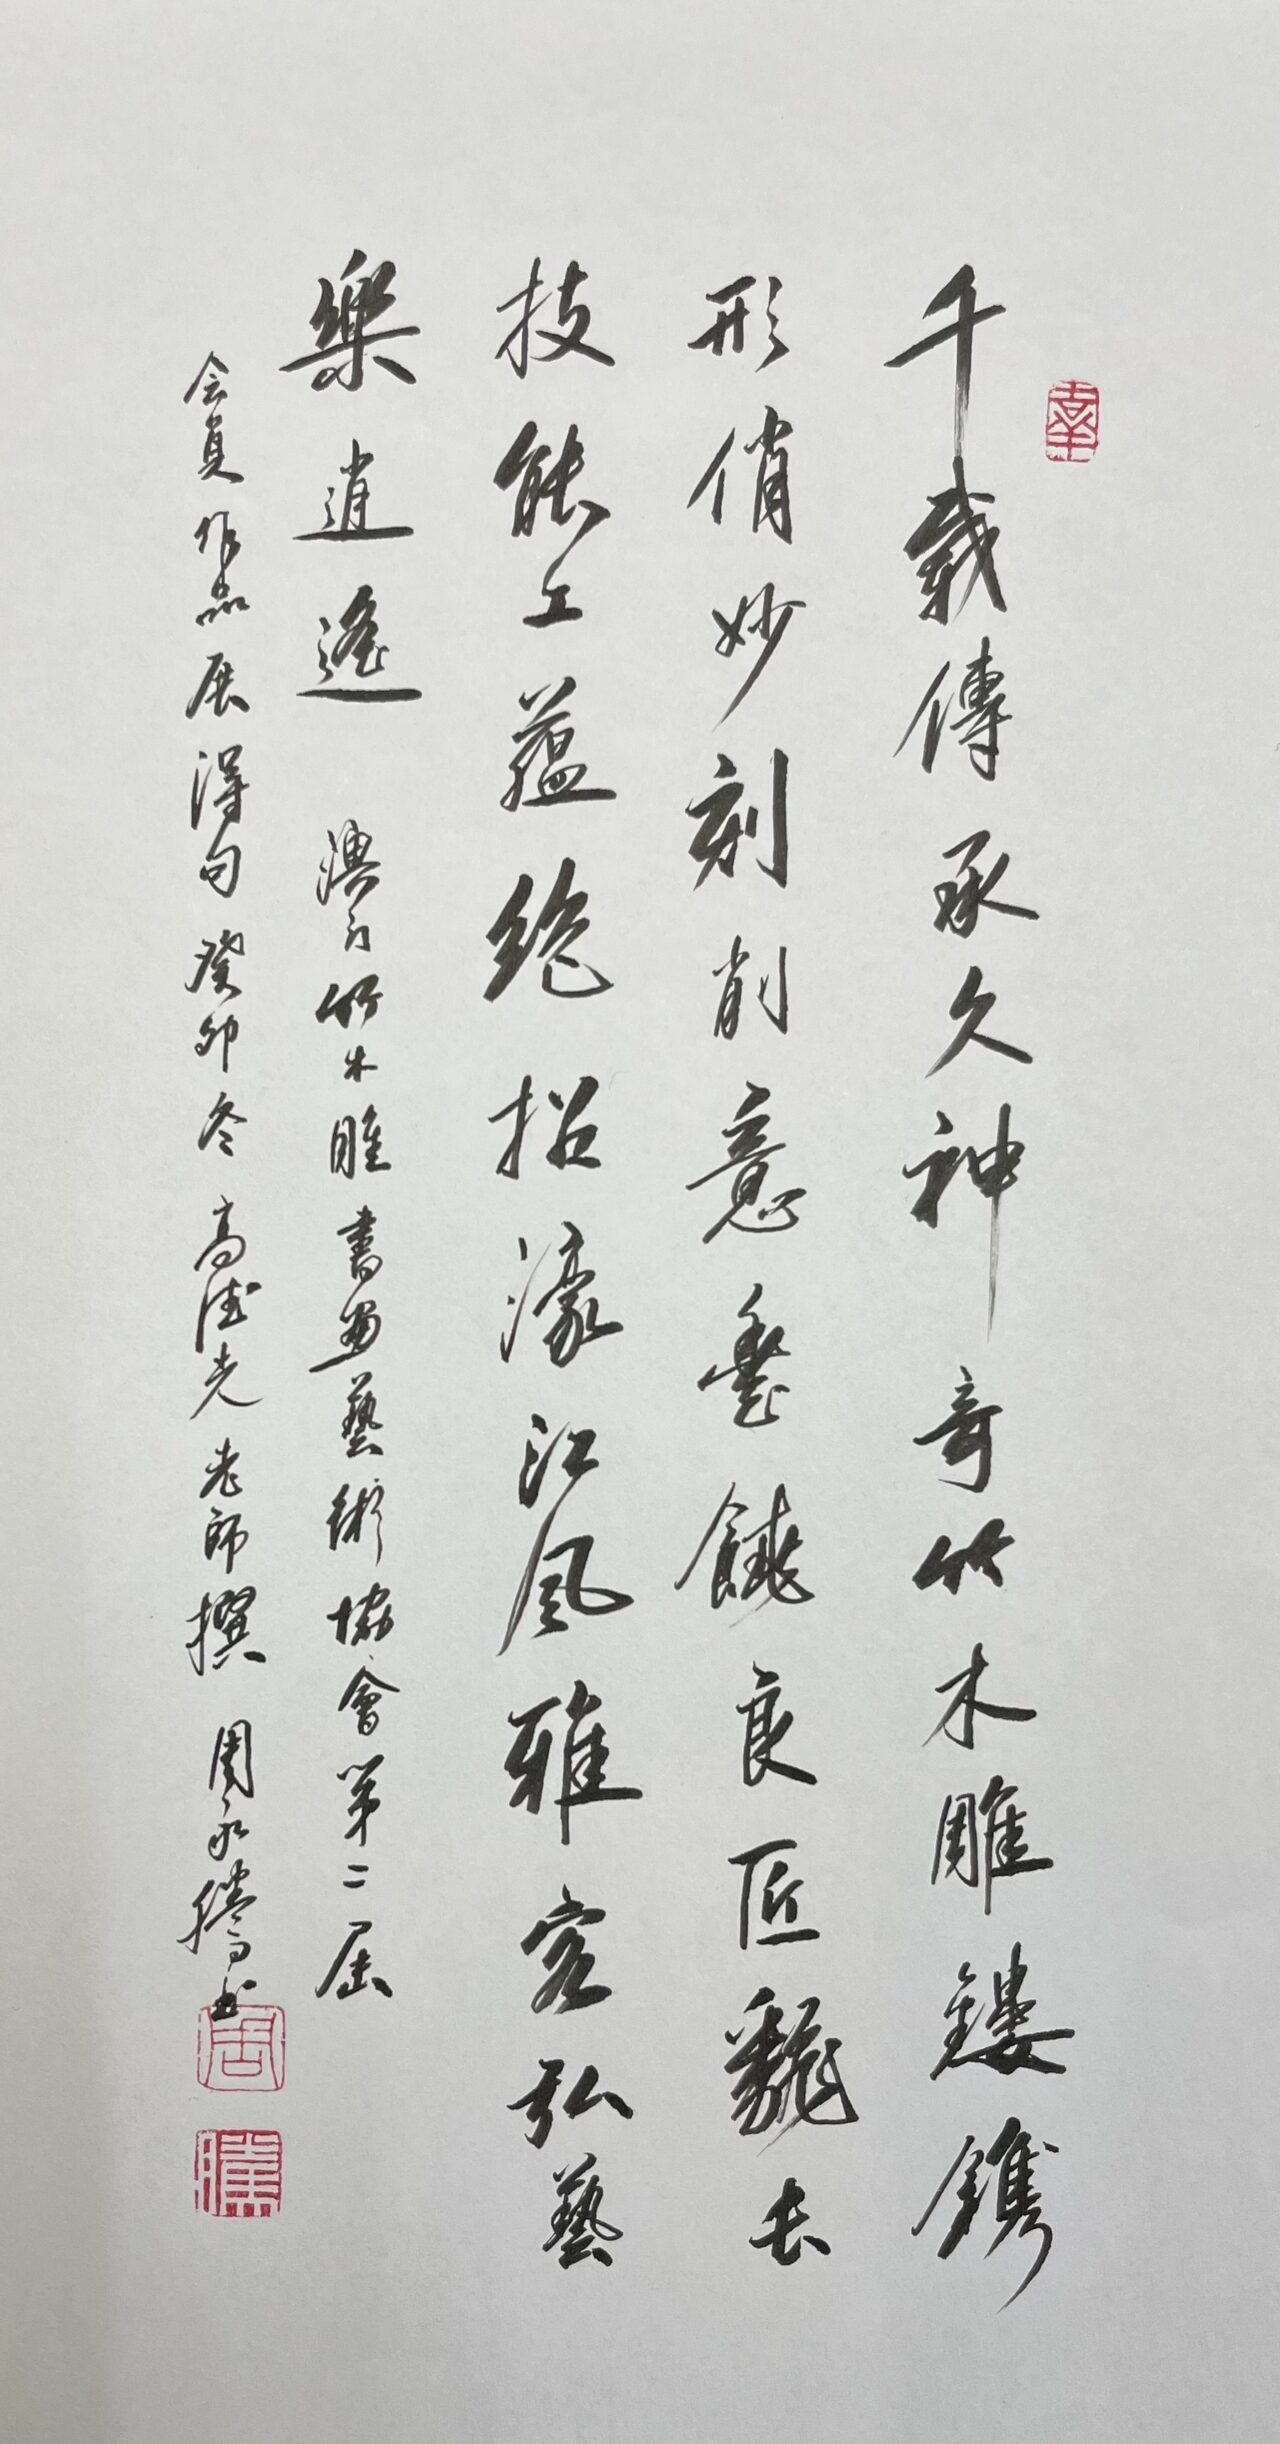 千載傳承久神奇竹木雕鏤鐫
形俏妙刻削意壑饒良匠藝長
技能工蘊絶招濠江風雅客弘藝
樂逍遙 澳門竹木雕書畫藝術協會第二屆
会員作品展得句 癸卯冬 高德光老師撰 周永騰书